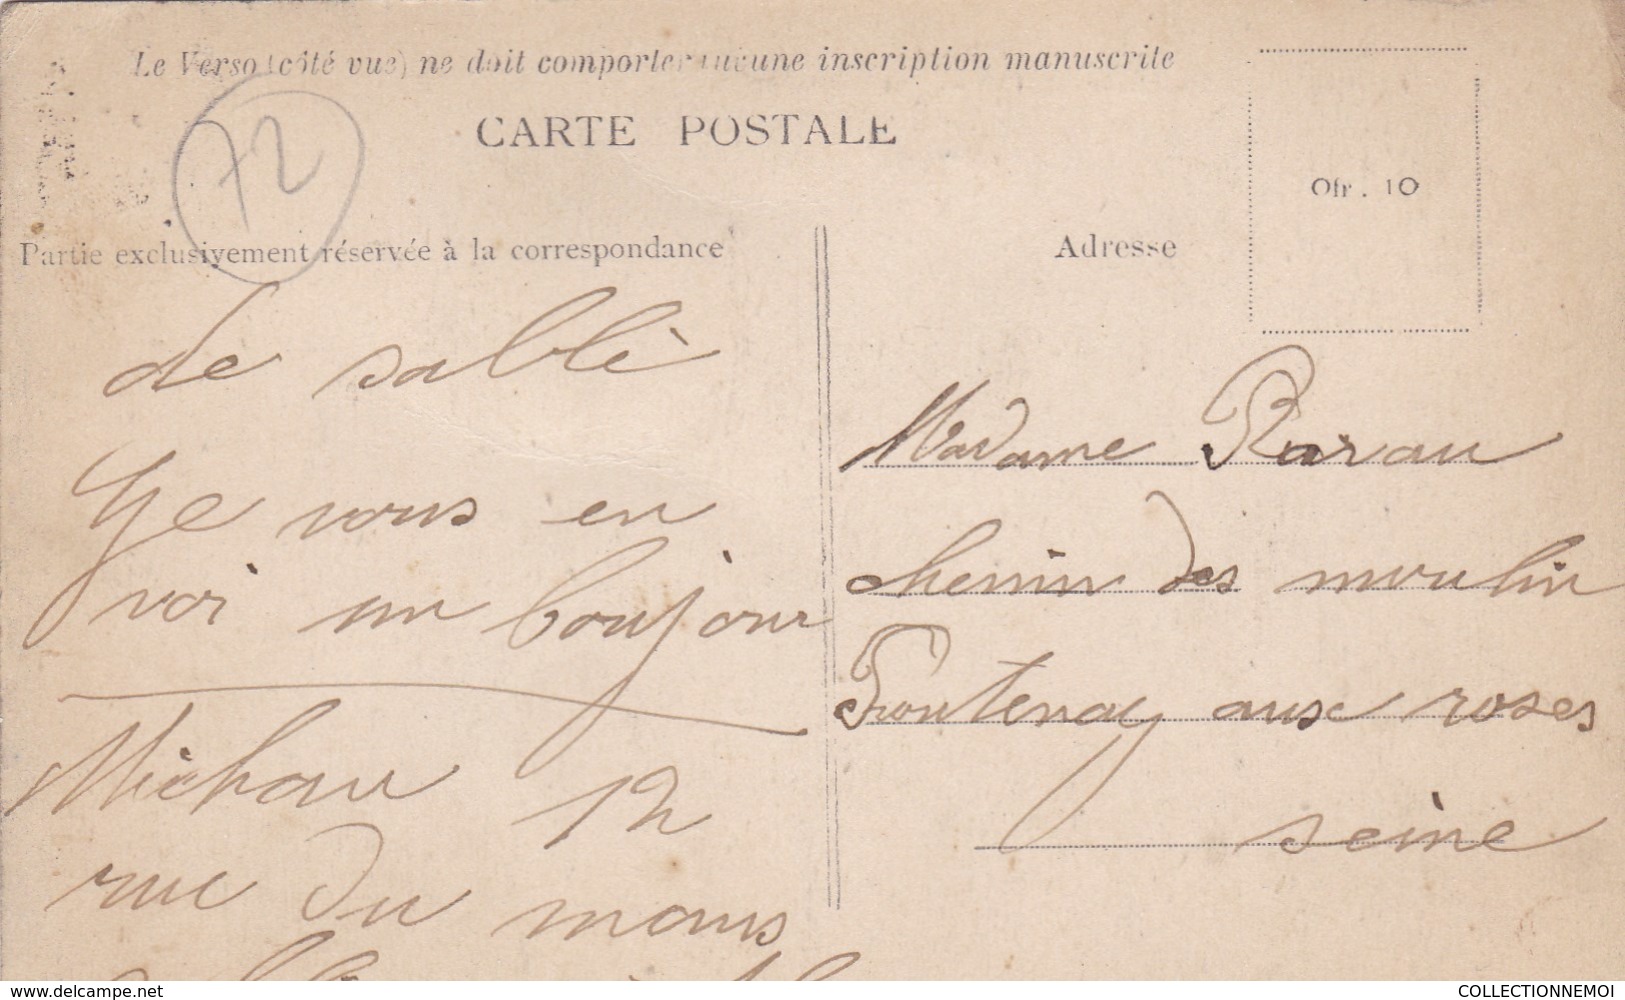 Le Verso (côté vue) ne doit comporter aucune inscription manuscrite
CARTE POSTALE
72
0fr. 10
Partie exclusivement réservée à la correspondance
Adresse
de sablé
Je vous en
voi un boujour
Michau 12
rue du mans
Madame
chemin des moulin
Fontenay aux roses
seine
www.delcampe.net
COLLECTIONNEMOI